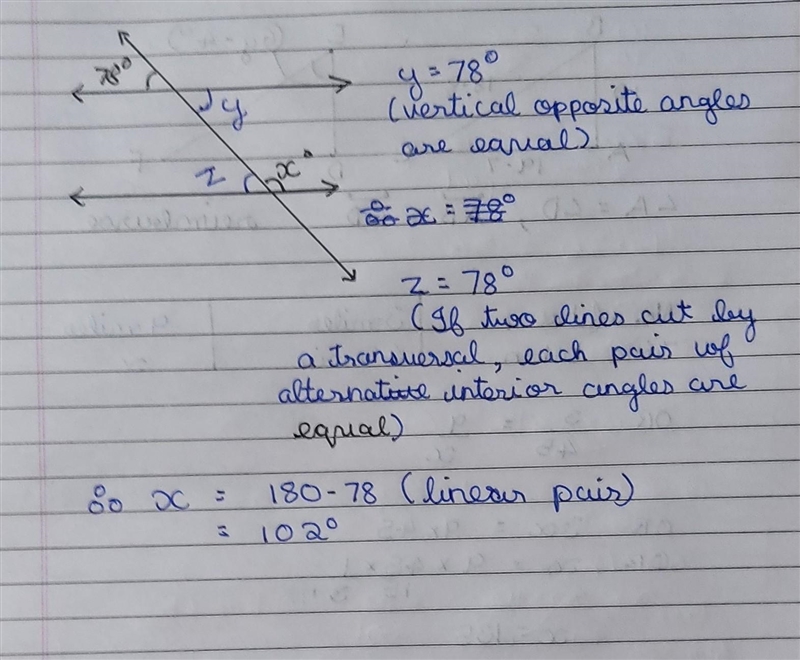 78°
y
z
x°
y = 78°
(vertical opposite angles
are equal)
∴ x = 78°
z = 78°
(If two lines cut by
a transversal, each pair of
alternative interior angles are
equal)
∴ x = 180-78 (linear pair)
= 102°